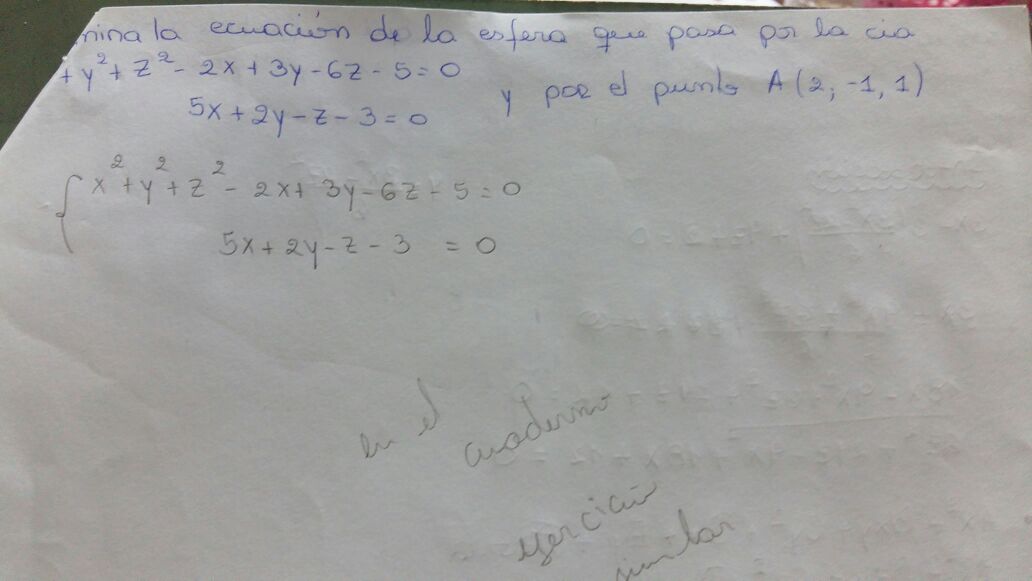 mina la ecuación de la esfera que pasa por la cia
+ y² + z² - 2x + 3y - 6z - 5 = 0
5x + 2y - z - 3 = 0
y por el punto A (2, -1, 1)
x² + y² + z² - 2x + 3y - 6z - 5 = 0
5x + 2y - z - 3 = 0
en el
cuaderno
ejercicio
similar